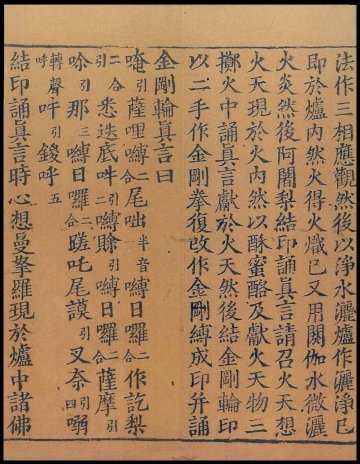 法作三相應觀然後以淨水灑爐作灑淨已
即於爐內然火得火熾已又用閼伽水微灑
火炎然後阿闍梨結印誦真言請召火天想
火天現於火內然以酥蜜酪及獻火天物三
擲火中誦真言獻於火天然後結金剛輪印
以二手作金剛拳復改作金剛縛成印并誦
金剛輪真言曰
唵引薩哩嚩二合尾咄半音嚩日囉二合作訖梨
二合引悉迭底吽二合嚩賒引嚩日囉二合薩摩引
喻引那三嚩日囉二合蹉吒尾謨引叉奈四嚩
轉聲呼吽引鍐呼五
結印誦真言時心想曼拏羅現於爐中諸佛